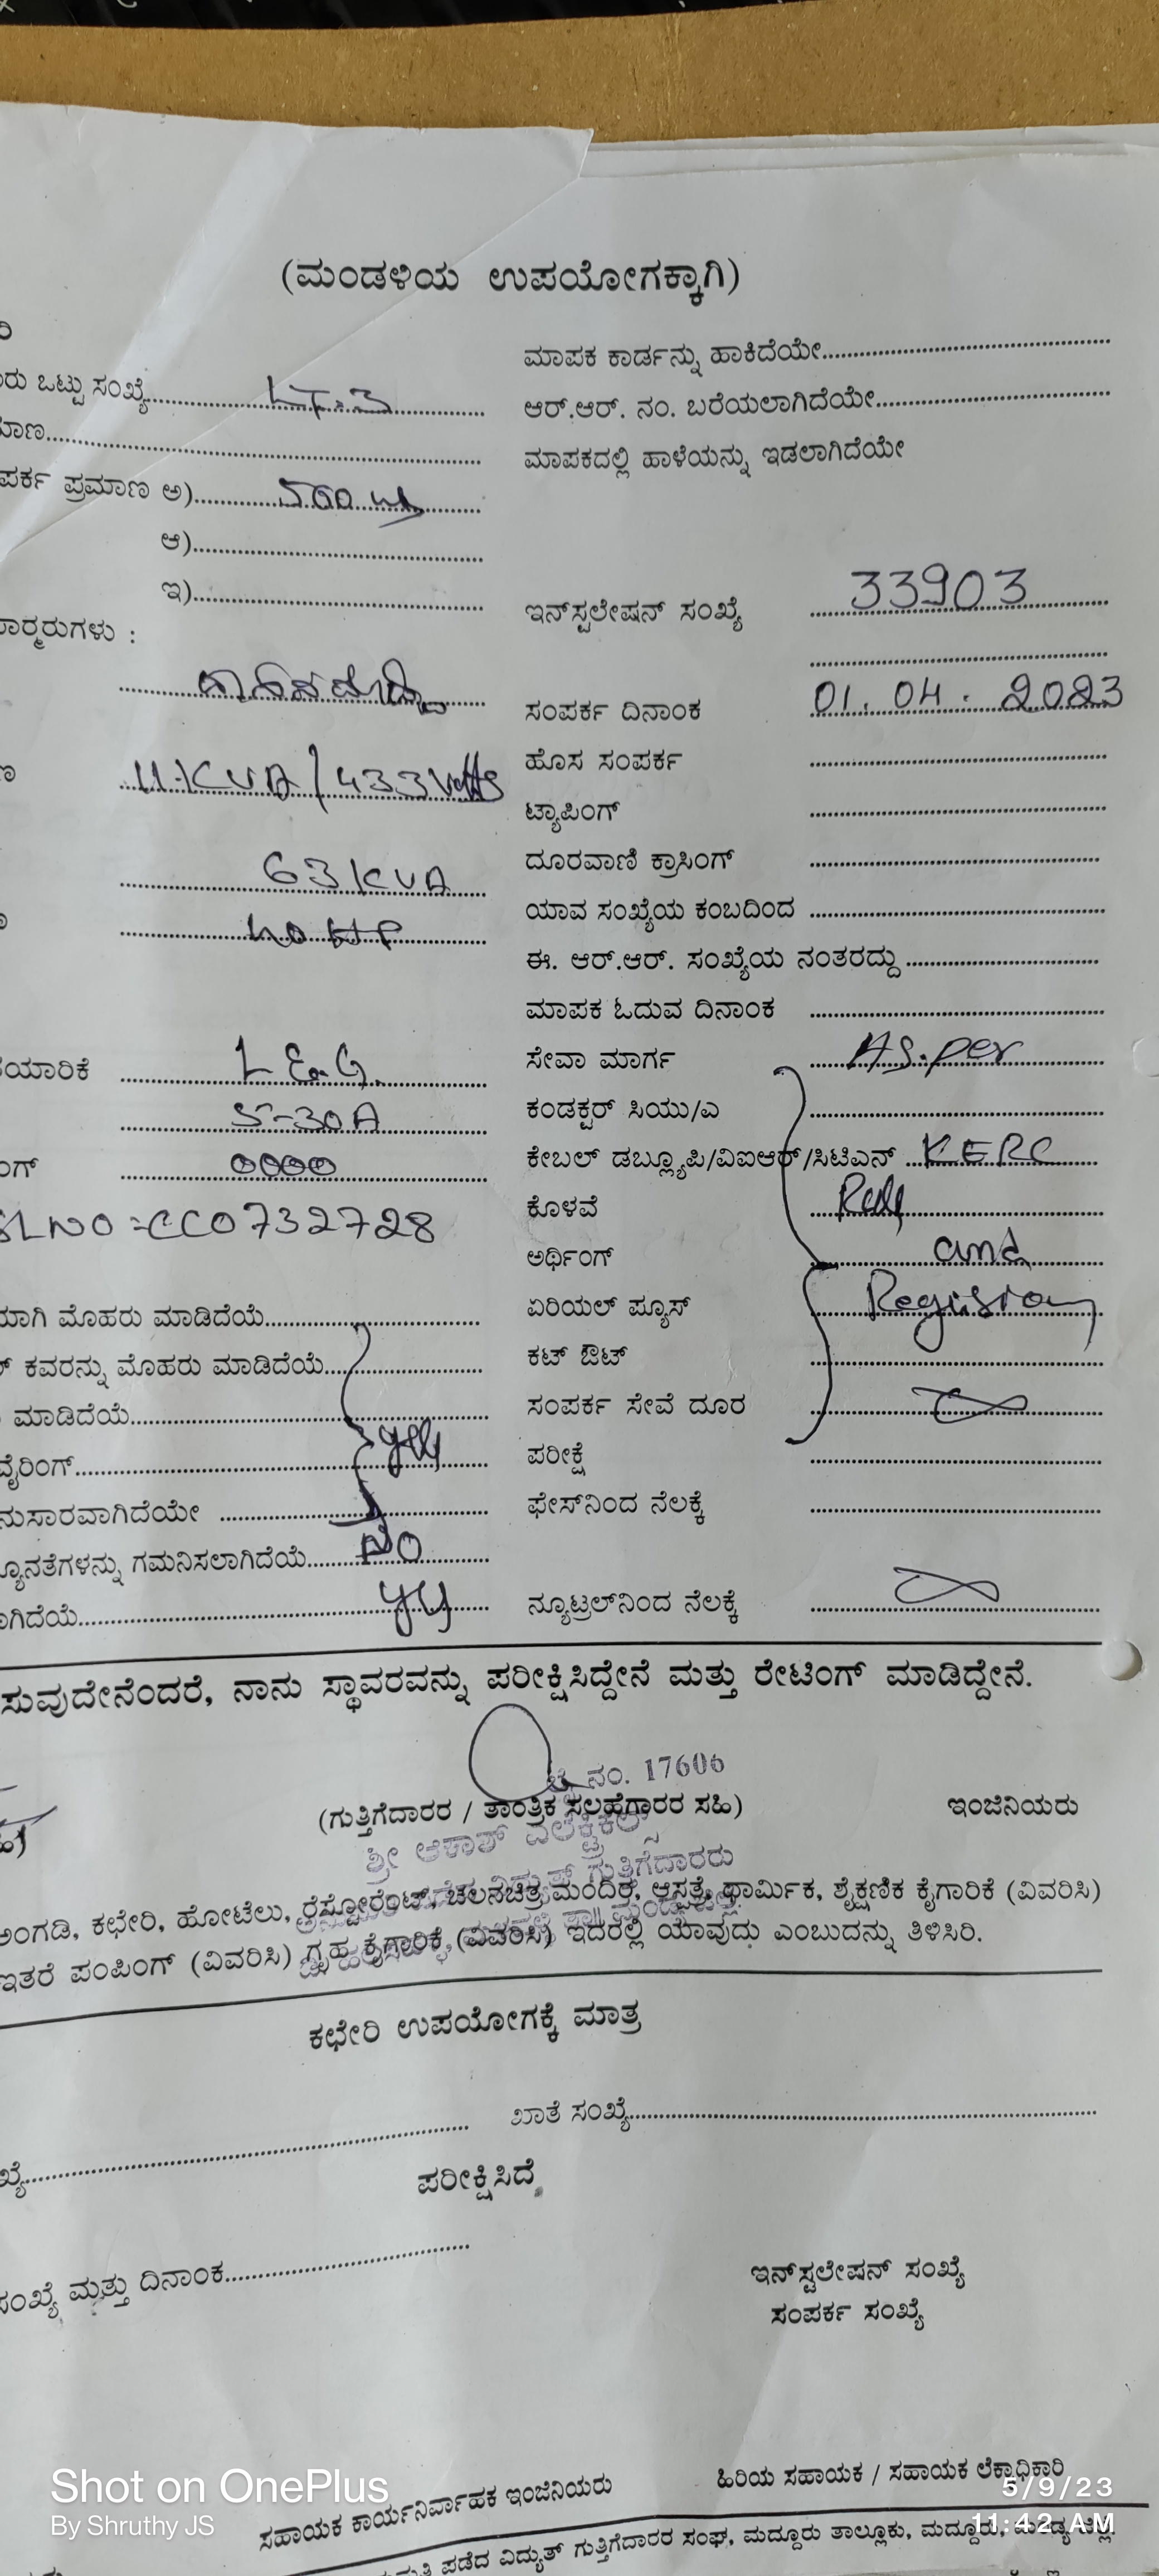 (ಮಂಡಳಿಯ ಉಪಯೋಗಕ್ಕಾಗಿ)
ರಿ
ಒಟ್ಟು ಸಂಖ್ಯೆ.......... LT-3
ಪ್ರಮಾಣ ಅ).......... 500 W
ಆ)..........
ಇ)..........
11 KVA / 433 Volts
63 KVA
40 HP
L&G.
5-30A
0000
SL NO :- CC0732728
ಮೊಹರು ಮಾಡಿದೆಯೆ..........
ಕವರನ್ನು ಮೊಹರು ಮಾಡಿದೆಯೆ..........
ಮಾಡಿದೆಯೆ..........
ವೈರಿಂಗ್..........
ಗಮನಿಸಲಾಗಿದೆಯೆ.......... NO
ಮಾಪಕ ಕಾರ್ಡನ್ನು ಹಾಕಿದೆಯೇ..........
ಆರ್.ಆರ್. ನಂ. ಬರೆಯಲಾಗಿದೆಯೇ..........
ಮಾಪಕದಲ್ಲಿ ಹಾಳೆಯನ್ನು ಇಡಲಾಗಿದೆಯೇ
ಇನ್‌ಸ್ಟಲೇಷನ್ ಸಂಖ್ಯೆ .......... 33903
ಸಂಪರ್ಕ ದಿನಾಂಕ 01.04.2023
ಹೊಸ ಸಂಪರ್ಕ ..........
ಟ್ಯಾಪಿಂಗ್ ..........
ದೂರವಾಣಿ ಕ್ರಾಸಿಂಗ್ ..........
ಯಾವ ಸಂಖ್ಯೆಯ ಕಂಬದಿಂದ ..........
ಈ. ಆರ್.ಆರ್. ಸಂಖ್ಯೆಯ ನಂತರದ್ದು ..........
ಮಾಪಕ ಓದುವ ದಿನಾಂಕ ..........
ಸೇವಾ ಮಾರ್ಗ .......... As per
ಕಂಡಕ್ಟರ್ ಸಿಯು/ಎ ..........
ಕೇಬಲ್ ಡಬ್ಲ್ಯೂಪಿ/ವಿಐಆರ್/ಸಿಟಿಎನ್ .......... KERC
ಕೊಳವೆ ..........
ಅರ್ಥಿಂಗ್ .......... and
ಏರಿಯಲ್ ಪ್ಯೂಸ್ ..........
ಕಟ್ ಔಟ್ ..........
ಸಂಪರ್ಕ ಸೇವೆ ದೂರ ..........
ಪರೀಕ್ಷೆ ..........
ಫೇಸ್‌ನಿಂದ ನೆಲಕ್ಕೆ ..........
ನ್ಯೂಟ್ರಲ್‌ನಿಂದ ನೆಲಕ್ಕೆ ..........
ನಾನು ಸ್ಥಾವರವನ್ನು ಪರೀಕ್ಷಿಸಿದ್ದೇನೆ ಮತ್ತು ರೇಟಿಂಗ್ ಮಾಡಿದ್ದೇನೆ.
ನಂ. 17606
(ಗುತ್ತಿಗೆದಾರರ / ತಾಂತ್ರಿಕ ಸಲಹೆಗಾರರ ಸಹಿ) ಇಂಜಿನಿಯರು
ಶ್ರೀ ಆಕಾಶ್ ಎಲೆಕ್ಟ್ರಿಕಲ್ಸ್
ವಿದ್ಯುತ್ ಗುತ್ತಿಗೆದಾರರು
ಅಂಗಡಿ, ಕಛೇರಿ, ಹೋಟೆಲು, ರೆಸ್ಟೋರೆಂಟ್, ಚಲನಚಿತ್ರ ಮಂದಿರ, ಆಸ್ಪತ್ರೆ, ಧಾರ್ಮಿಕ, ಶೈಕ್ಷಣಿಕ ಕೈಗಾರಿಕೆ (ವಿವರಿಸಿ)
ಇತರೆ ಪಂಪಿಂಗ್ (ವಿವರಿಸಿ) ಗೃಹ ಕೈಗಾರಿಕೆ (ವಿವರಿಸಿ) ಇದರಲ್ಲಿ ಯಾವುದು ಎಂಬುದನ್ನು ತಿಳಿಸಿರಿ.
ಕಛೇರಿ ಉಪಯೋಗಕ್ಕೆ ಮಾತ್ರ
ಖಾತೆ ಸಂಖ್ಯೆ..........
ಪರೀಕ್ಷಿಸಿದೆ
ಸಂಖ್ಯೆ ಮತ್ತು ದಿನಾಂಕ..........
ಇನ್‌ಸ್ಟಲೇಷನ್ ಸಂಖ್ಯೆ
ಸಂಪರ್ಕ ಸಂಖ್ಯೆ
ಸಹಾಯಕ ಕಾರ್ಯನಿರ್ವಾಹಕ ಇಂಜಿನಿಯರು
ಹಿರಿಯ ಸಹಾಯಕ / ಸಹಾಯಕ ಲೆಕ್ಕಾಧಿಕಾರಿ
ಪಡೆದ ವಿದ್ಯುತ್ ಗುತ್ತಿಗೆದಾರರ ಸಂಘ, ಮದ್ದೂರು ತಾಲ್ಲೂಕು, ಮದ್ದೂರು, ಮಂಡ್ಯ ಜಿಲ್ಲೆ.
Shot on OnePlus
By Shruthy JS
5/9/23
11:42 AM